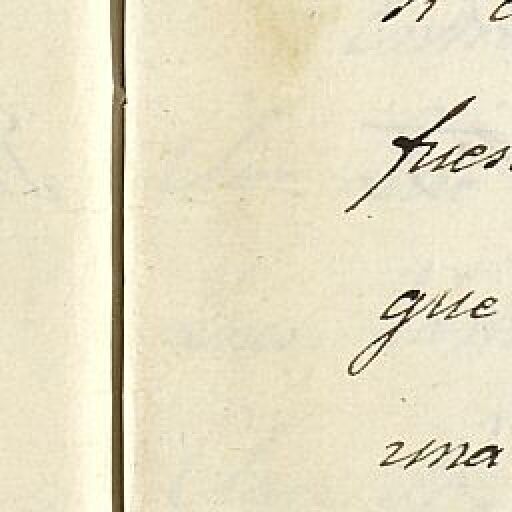 fues
que
una